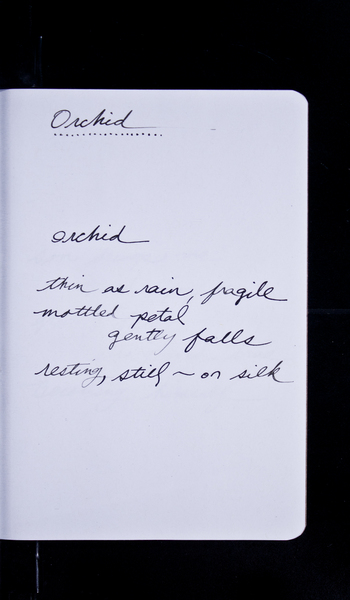 Orchid
orchid
thin as rain, fragile
mottled petal
gently falls
resting, still ~ on silk